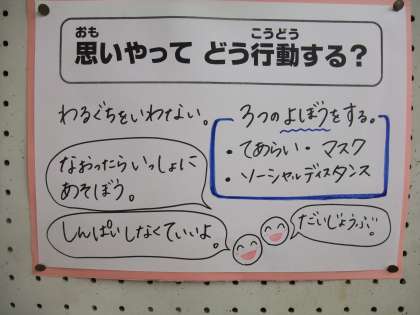 おも こうどう
思いやって どう行動する?
わるぐちをいわない。
3つのよぼうをする。
・てあらい・マスク
・ソーシャルディスタンス
なおったらいっしょに
あそぼう。
しんぱいしなくていいよ。
だいじょうぶ。